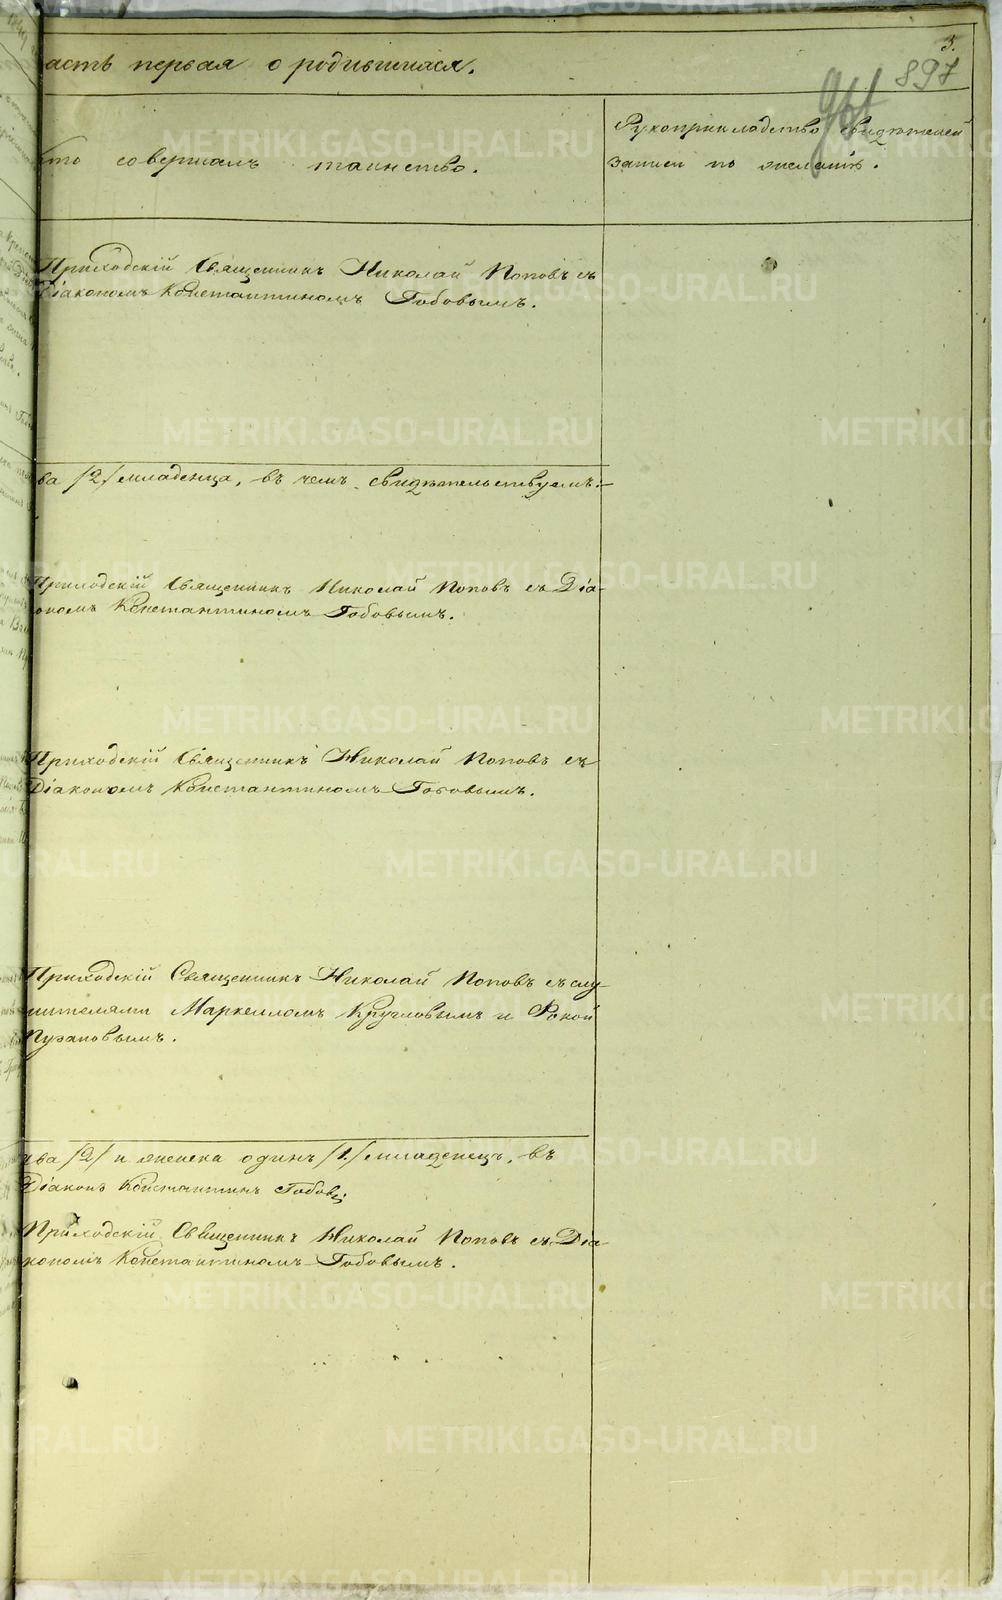 3.
897
асть первая о родившихся.
кто совершалъ таинство.
Рукоприкладство свидѣтелей
записи по желанію.
Приходскій Священникъ Николай Поповъ съ
Діакономъ Константиномъ Гобовымъ.
ва /2/ младенца, въ чемъ свидѣтельствуемъ:
Приходскій Священникъ Николай Поповъ съ Діа-
кономъ Константиномъ Гобовымъ.
Приходскій Священникъ Николай Поповъ съ
Діакономъ Константиномъ Гобовымъ.
Приходскій Священникъ Николай Поповъ съ слу-
жителями Маркелломъ Кругловымъ и Фокой
Пузановымъ.
два /2/ и женска одинъ /1/ младенецъ, въ
Діаконъ Константинъ Гобовъ
Приходскій Священникъ Николай Поповъ съ Діа-
кономъ Константиномъ Гобовымъ.
METRIKI.GASO-URAL.RU